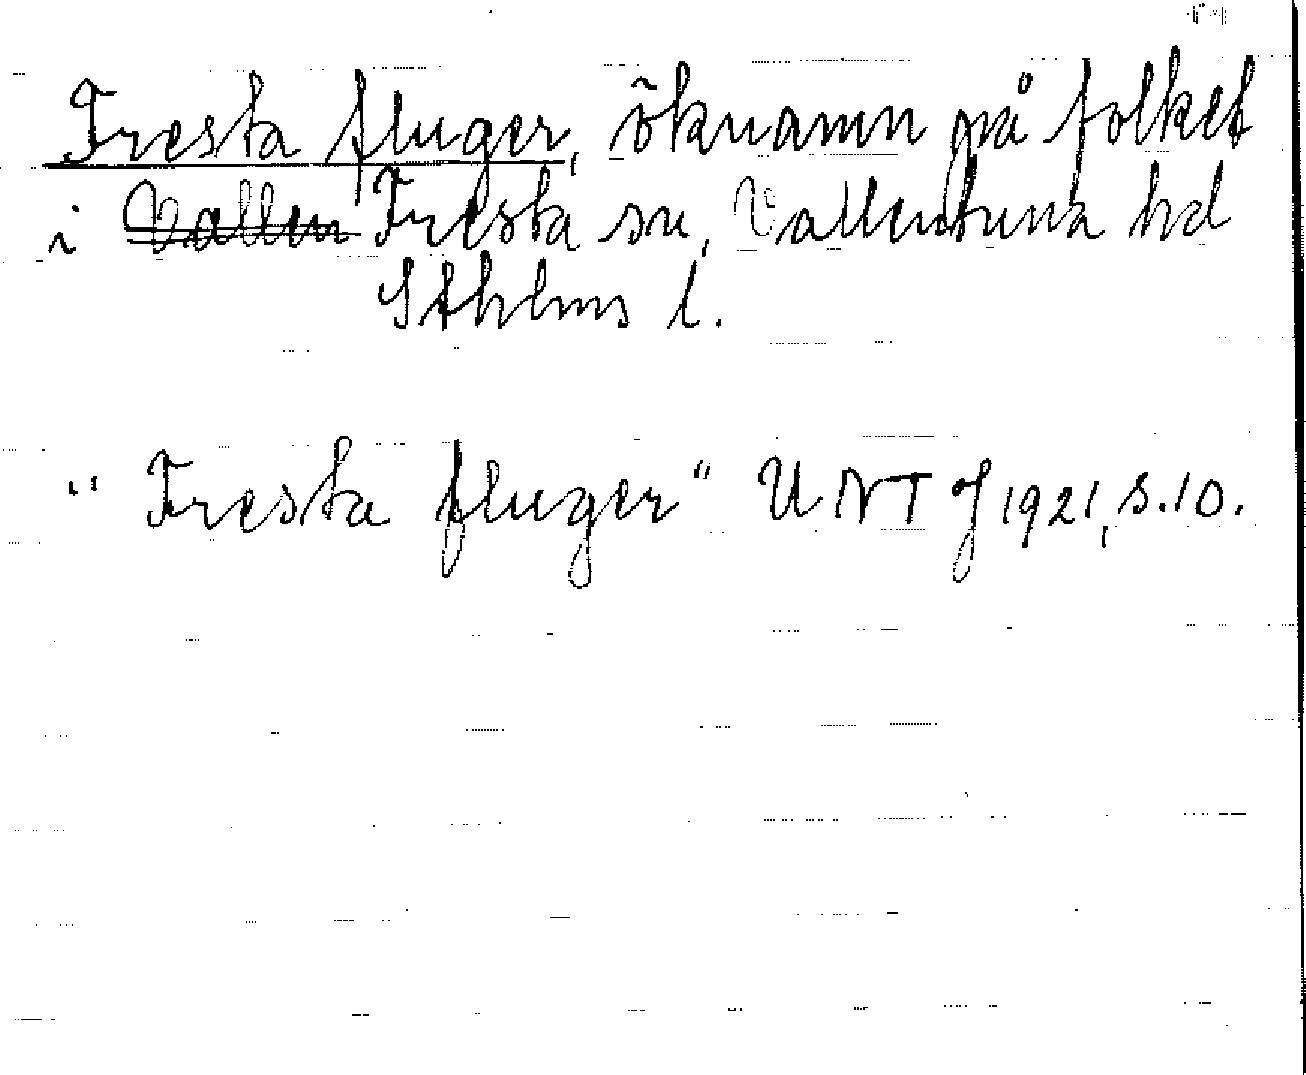 Fresta fluger, öknamn på folket
i Vallen Fresta sn, Vallentuna hd
Sthlms l.
"Fresta fluger" UNT J 1921, s. 10.